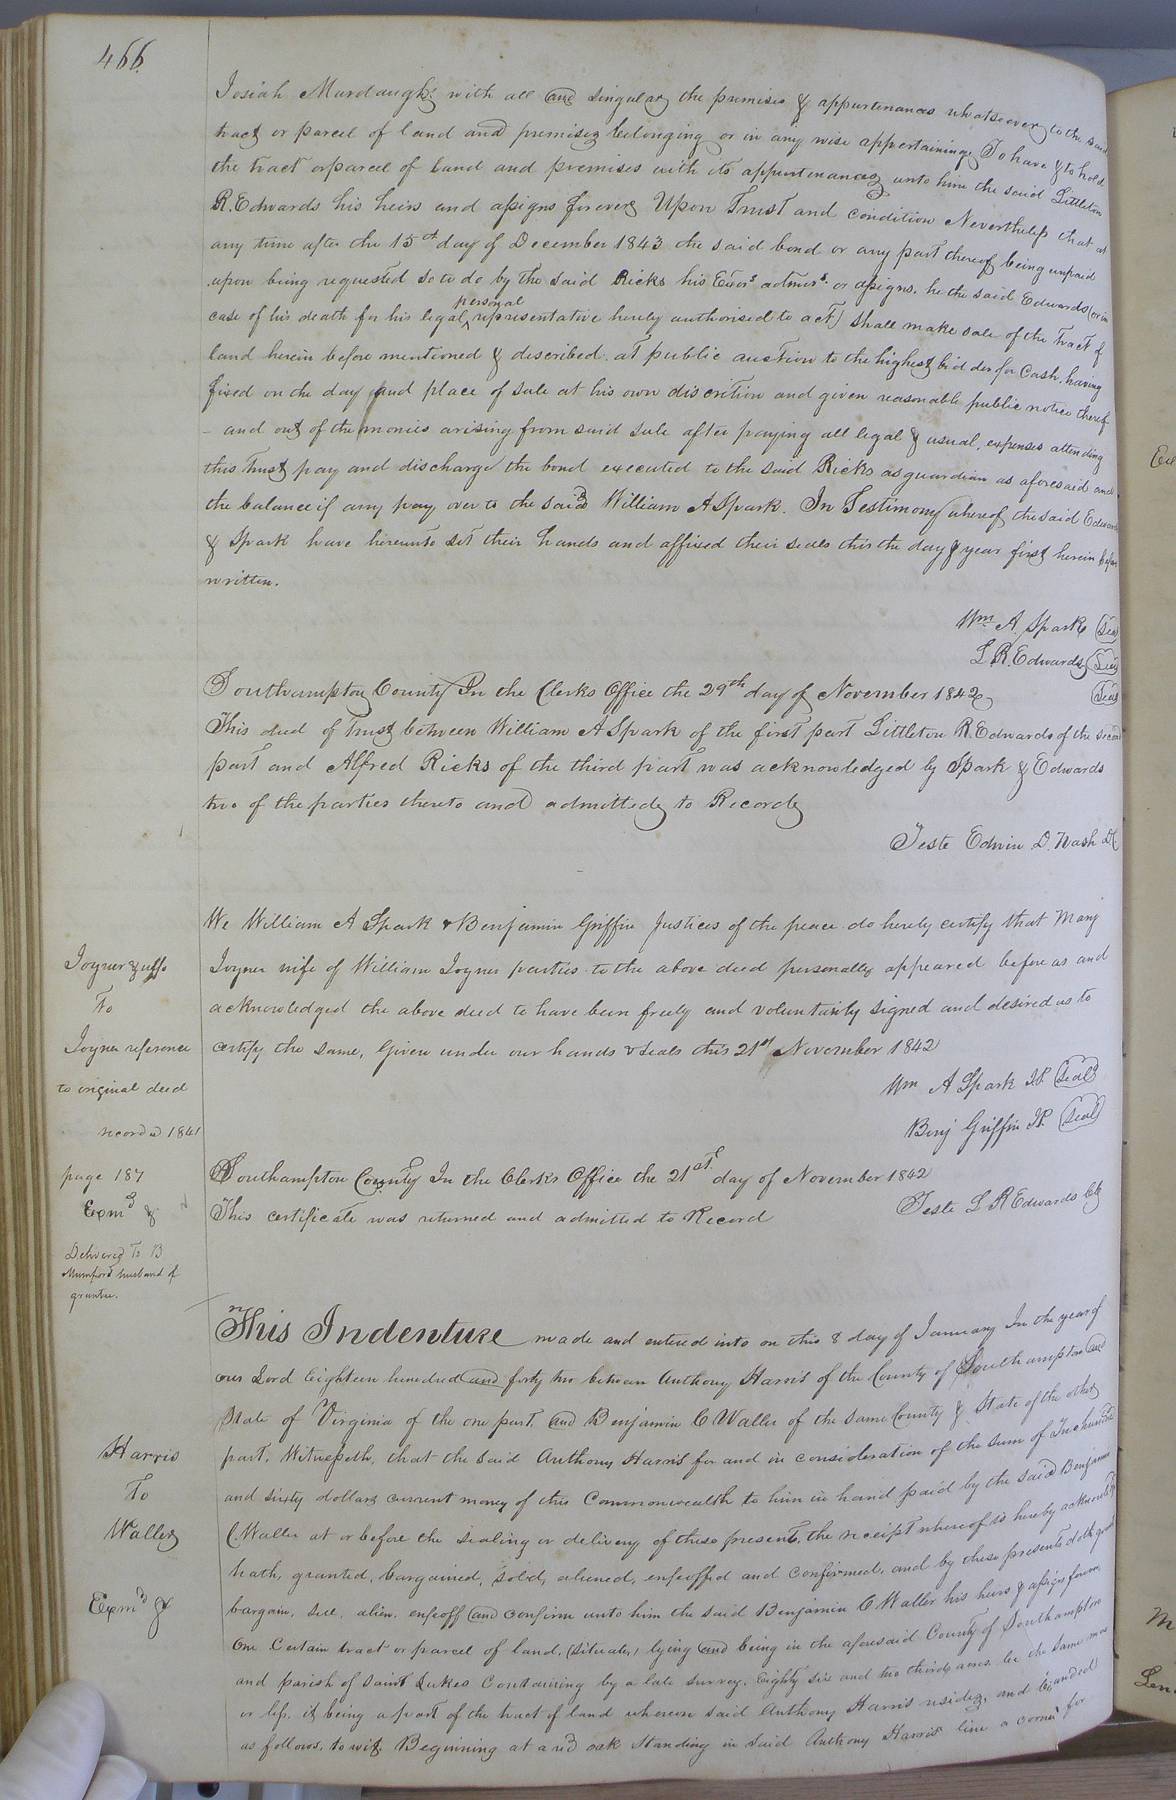 466.
Josiah Murdaugh: with all and singular the premises & appurtenances whatsoever to the said
tract or parcel of land and premises belonging or in any wise appertaining To have & to hold
the tract or parcel of land and premises with its appurtenances unto him the said Littleton
R. Edwards his heirs and assigns forever Upon Trust and condition Nevertheless that at
any time after the 15th day of December 1843 the said bond or any part thereof being unpaid
upon being requested so to do by the said Ricks his Exors admrs or assigns. he the said Edwards (or in
case of his death for his legal personal representative hereby authorised to act) shall make sale of the tract of
land herein before mentioned & described at public auction to the highest bidder for Cash, having
fixed on the day and place of sale at his own discrition and given reasonable public notice thereof
– and out of the monies arising from said sale after paying all legal & usual, expenses attending
this Trust pay and discharge the bond executed to the said Ricks as guardian as aforesaid and
the balance if any pay over to the said William A Spark. In Testimony whereof the said Edwards
& Spark have hereunto set their hands and affixed their seals this the day & year first herein before
written.
Wm A. Spark (Seal)
L. R. Edwards (Seal)
(Seal)
Southampton County In the Clerks Office the 29th day of November 1842
This deed of Trust between William A Spark of the first part Littleton R. Edwards of the second
part and Alfred Ricks of the third part was acknowledged by Spark & Edwards
two of the parties thereto and admitted to Record
Teste Edwin D. Wash DC
We William A Spark & Benjamin Griffin Justices of the peace do hereby certify that Mary
Joyner wife of William Joyner parties to the above deed personally appeared before us and
acknowledged the above deed to have been freely and voluntarily signed and desired us to
certify the same, Given under our hands & seals this 21st November 1842
Wm A Spark JP (Seal)
Benj Griffin JP. (Seal)
Southampton County In the Clerks Office the 21st day of November 1842
This certificate was returned and admitted to Record
Teste L R Edwards Clk
Joyner & wife
To
Joyner reference
to original deed
recorded 1841
page 187
Exmd &
Delivered To B
Mumford husband of
grantee.
This Indenture made and entered into on this 8 day of January In the year of
our Lord Eighteen hundred and forty two between Anthony Harris of the County of Southampton and
State of Virginia of the one part, and Benjamin C Waller of the same County & State of the other
part, Witnesseth, that the said Anthony Harris for and in consideration of the sum of
and sixty dollars current money of this Commonwealth to him in hand paid by the said Benjamin
C Waller at or before the sealing or delivery of these presents, the receipt whereof is hereby acknowledged
hath, granted, bargained, sold, aliened, enfeoffed and confirmed, and by these presents doth grant
bargain, sell, alien, enfeoff and confirm unto him the said Benjamin C Waller his heirs & assigns forever
One Certain tract or parcel of land, (situate,) lying and being in the aforesaid County of Southampton
and parish of Saint Lukes Containing by a late survey, Eighty six and two thirds acres be the same more
or less, it being a part of the tract of land whereon said Anthony Harris resides, and bounded
as follows, to wit, Beginning at a red oak standing in said Anthony Harris line a corner for
Harris
To
Waller
Exmd &